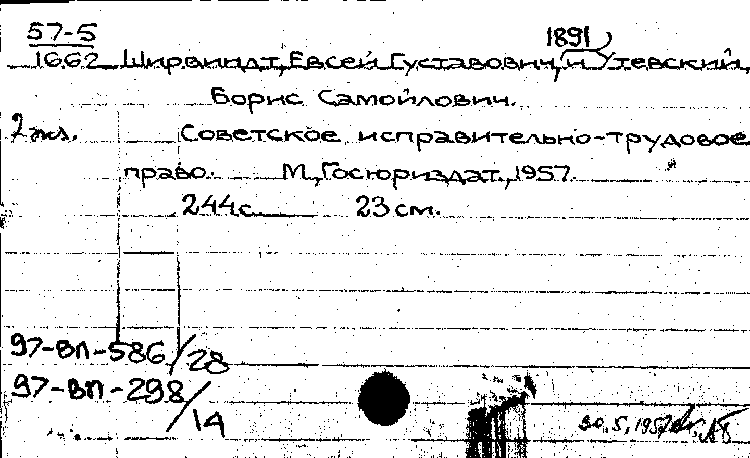 57-5 1891
1662 Ширвиндт, Евсей Густавович, и Утевский,
Борис Самойлович.
2 экз. Советское исправительно-трудовое
право. М., Госюриздат, 1957.
244 с. 23 см.
97-ВП-586/28
97-ВП-298/14
20.5.1957